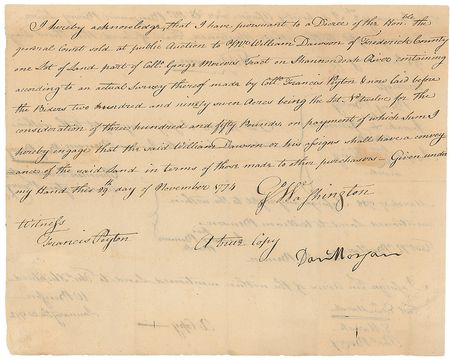 I hereby acknowledge, that I have pursuant to a Decree of the Honble the
general Court sold at public Auction to Mr William Dawson, of Frederick County
one Lot of Land part of Collo George Mercers Tract on Shannondoah River containing
according to an actual Survey thereof made by Collo Francis Peyton & now laid before
the Biders two hundred and ninety seven Acres being the Lot No twelve for the
consideration of three hundred and fifty Pounds, on payment of which Sum I
hereby engage that the said William Dawson or his assigns shall have a convey
ance of the said Land in terms of those made to other purchasers – Given under
my Hand this 29th day of November 1774
Go Washington
Witness
Francis Peyton
A true Copy
Dan Morgan
A Copy